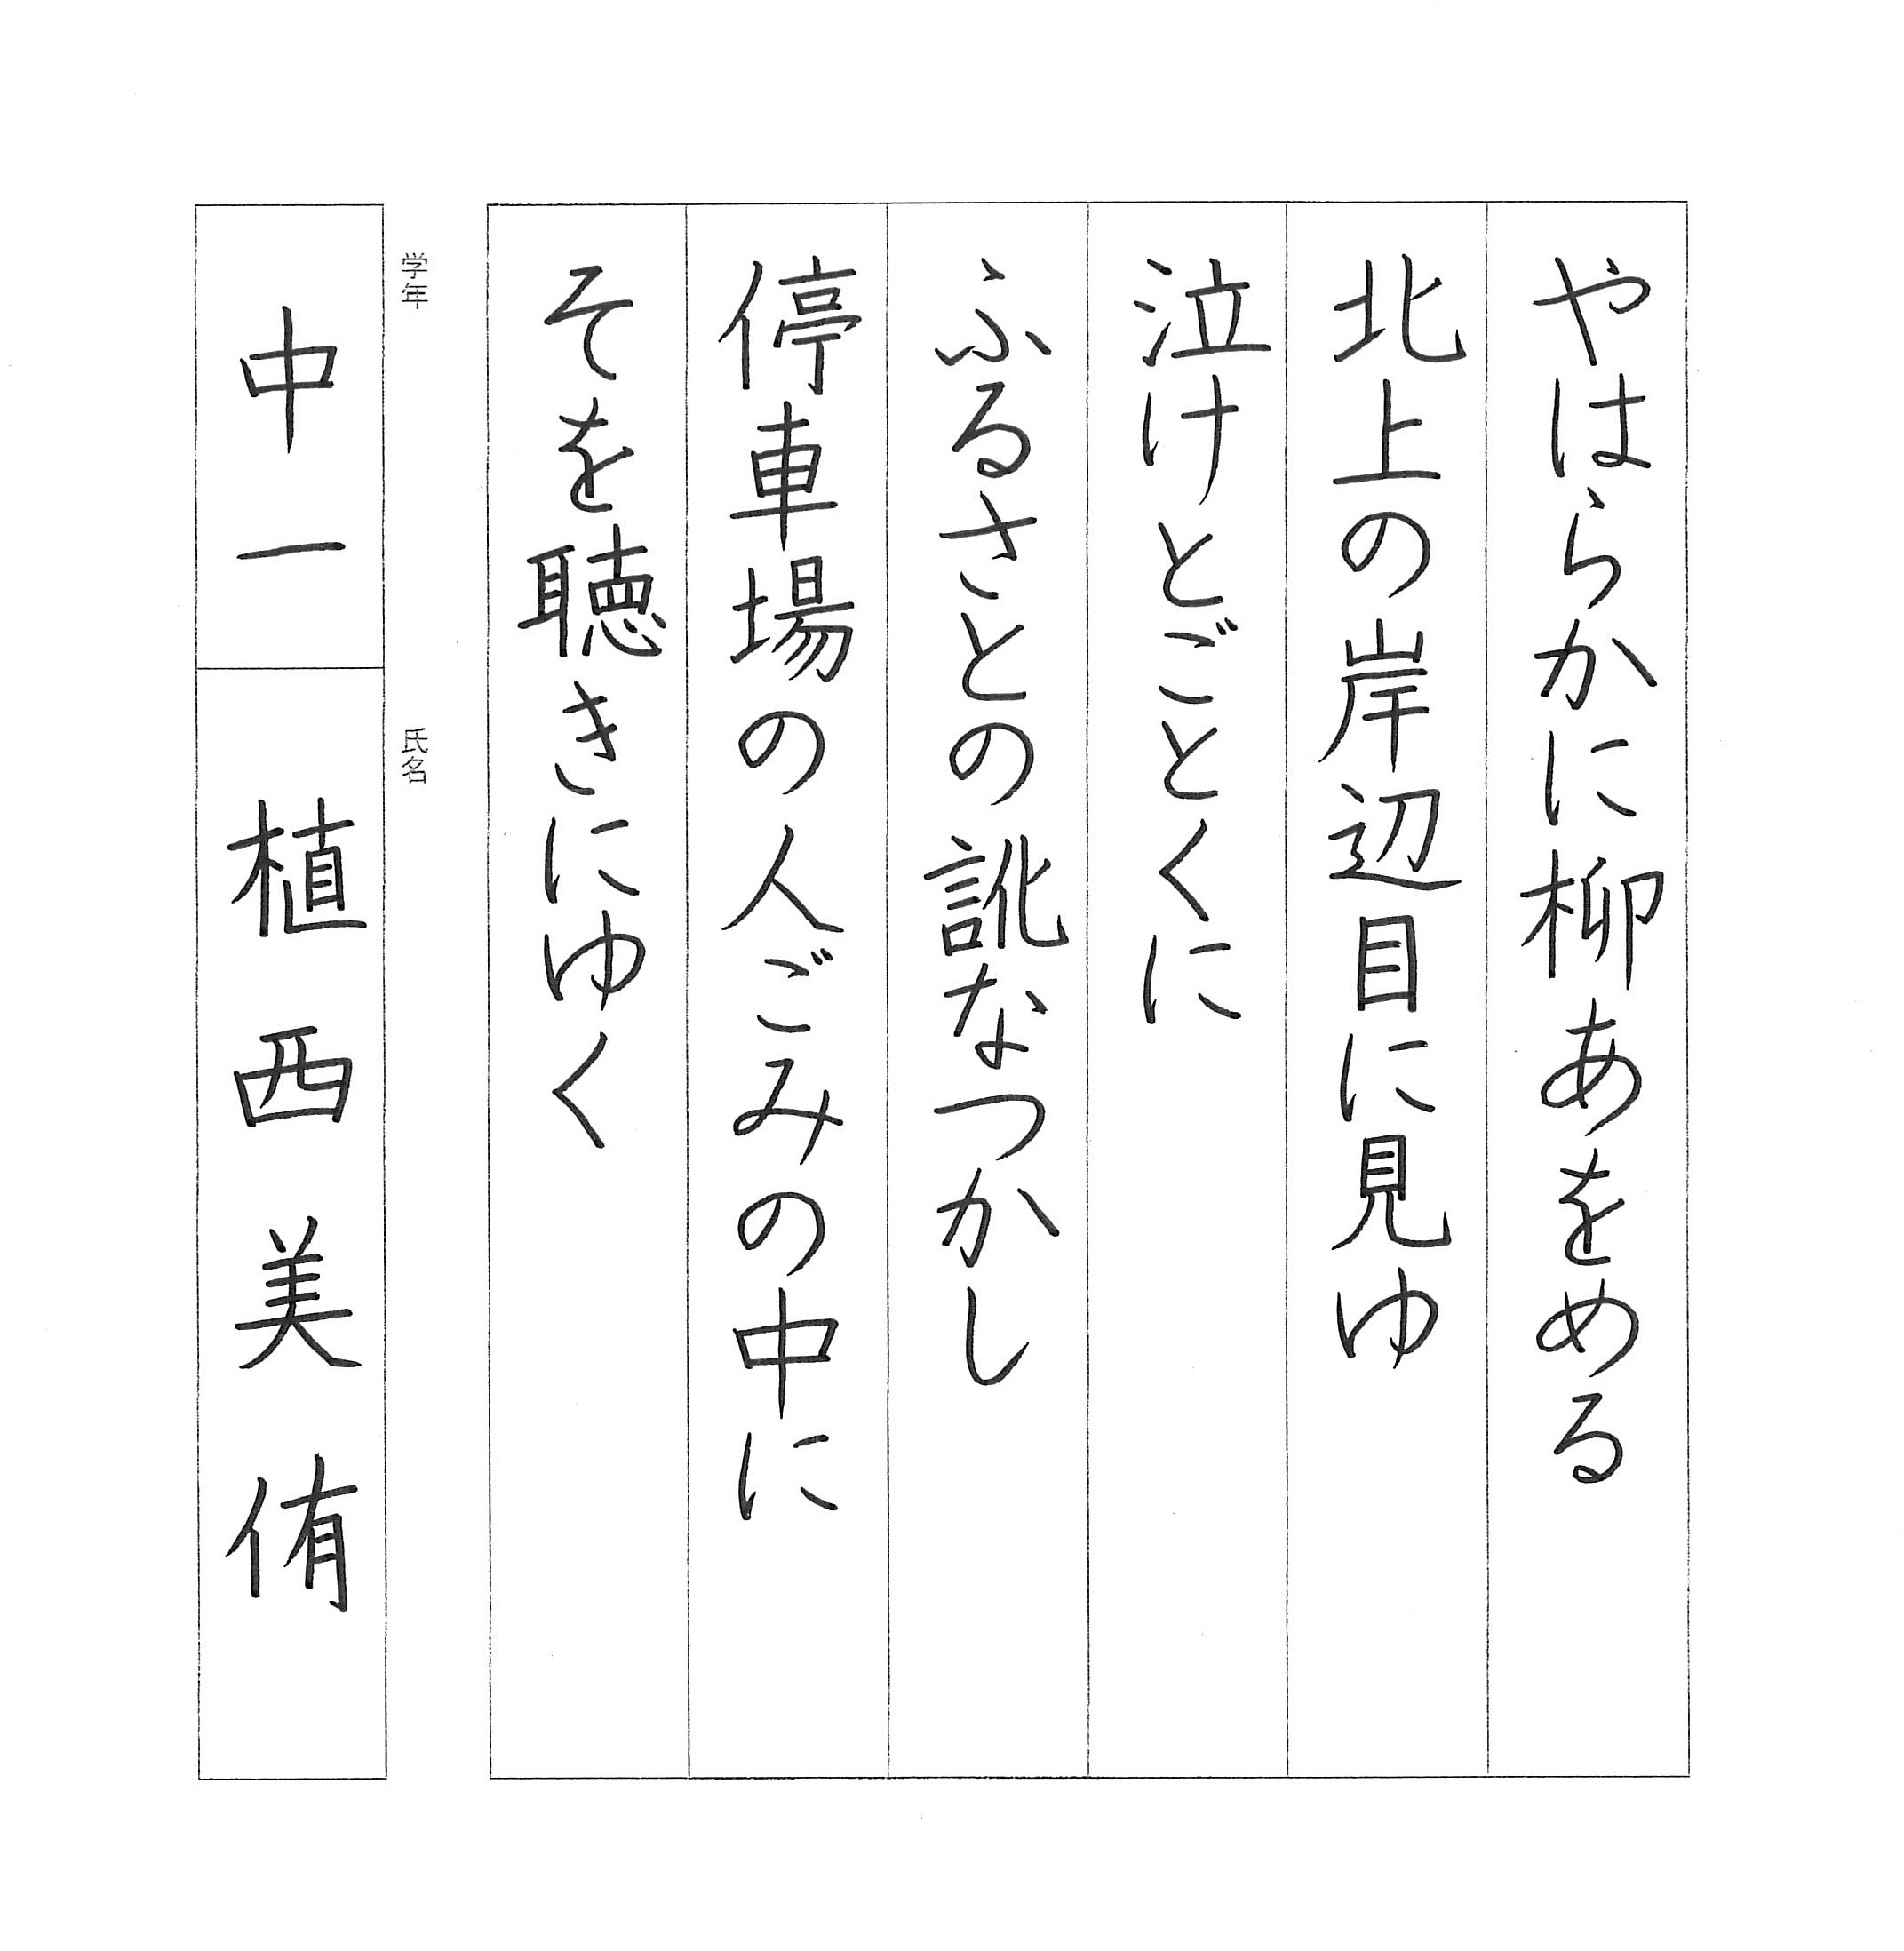 やはらかに柳あをめる
北上の岸辺目に見ゆ
泣けとごとくに
ふるさとの訛なつかし
停車場の人ごみの中に
そを聴きにゆく
学年
中一
氏名
植西美侑